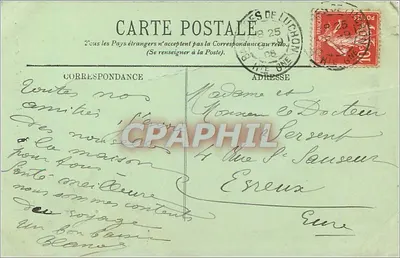 CARTE POSTALE
Tous les Pays étrangers n'acceptent pas la Correspondance au recto
(Se renseigner à la Poste)
CORRESPONDANCE
ADRESSE
ES DE LUCHON
9 25
08
HTE GNE
10
CPAPHIL
Toutes nos
amitiés
des nouvelles
à la maison
pour tous
Santé meilleure
nous sommes contents
du voyage
un bon baiser
Madame et
Monsieur le Docteur
Persent
4 Rue St Sauveur
Evreux
Eure